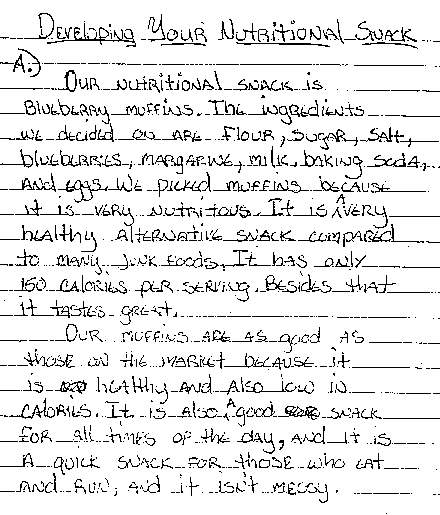 Developing Your Nutritional Snack
A.)
Our nutritional snack is
Blueberry muffins. The ingredients
we decided on are flour, sugar, salt,
blueberries, margarine, milk, baking soda,
and eggs. We picked muffins because
it is very nutritous. It is ^ very
healthy alternative snack compared
to many junk foods. It has only
150 calories per serving. Besides that
it tastes great.
Our muffins are as good as
those on the market because it
is healthy and also low in
calories. It is also ^ good snack
for all times of the day, and it is
a quick snack for those who eat
and run, and it isn't messy.